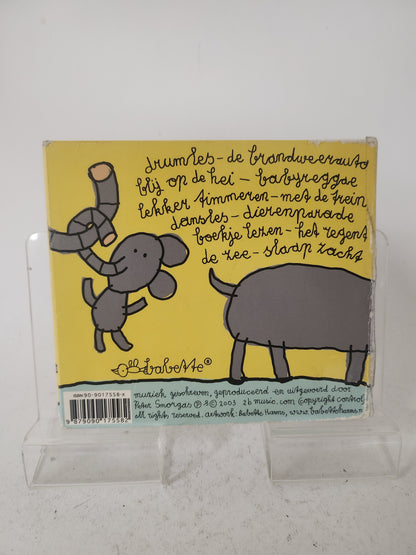 drumles - de brandweerauto
blij op de hei - babyreggae
lekker timmeren - met de trein
dansles - dierenparade
boekje lezen - het regent
de zee - slaap zacht
babette®
ISBN 90-9017558-X
9 789090 175582
muziek geschreven, geproduceerd en uitgevoerd door
Peter Snorgas ℗ & © 2003 2b music.com Copyright control
all right reserved. artwork: Babette Harms, www.babetteharms.n